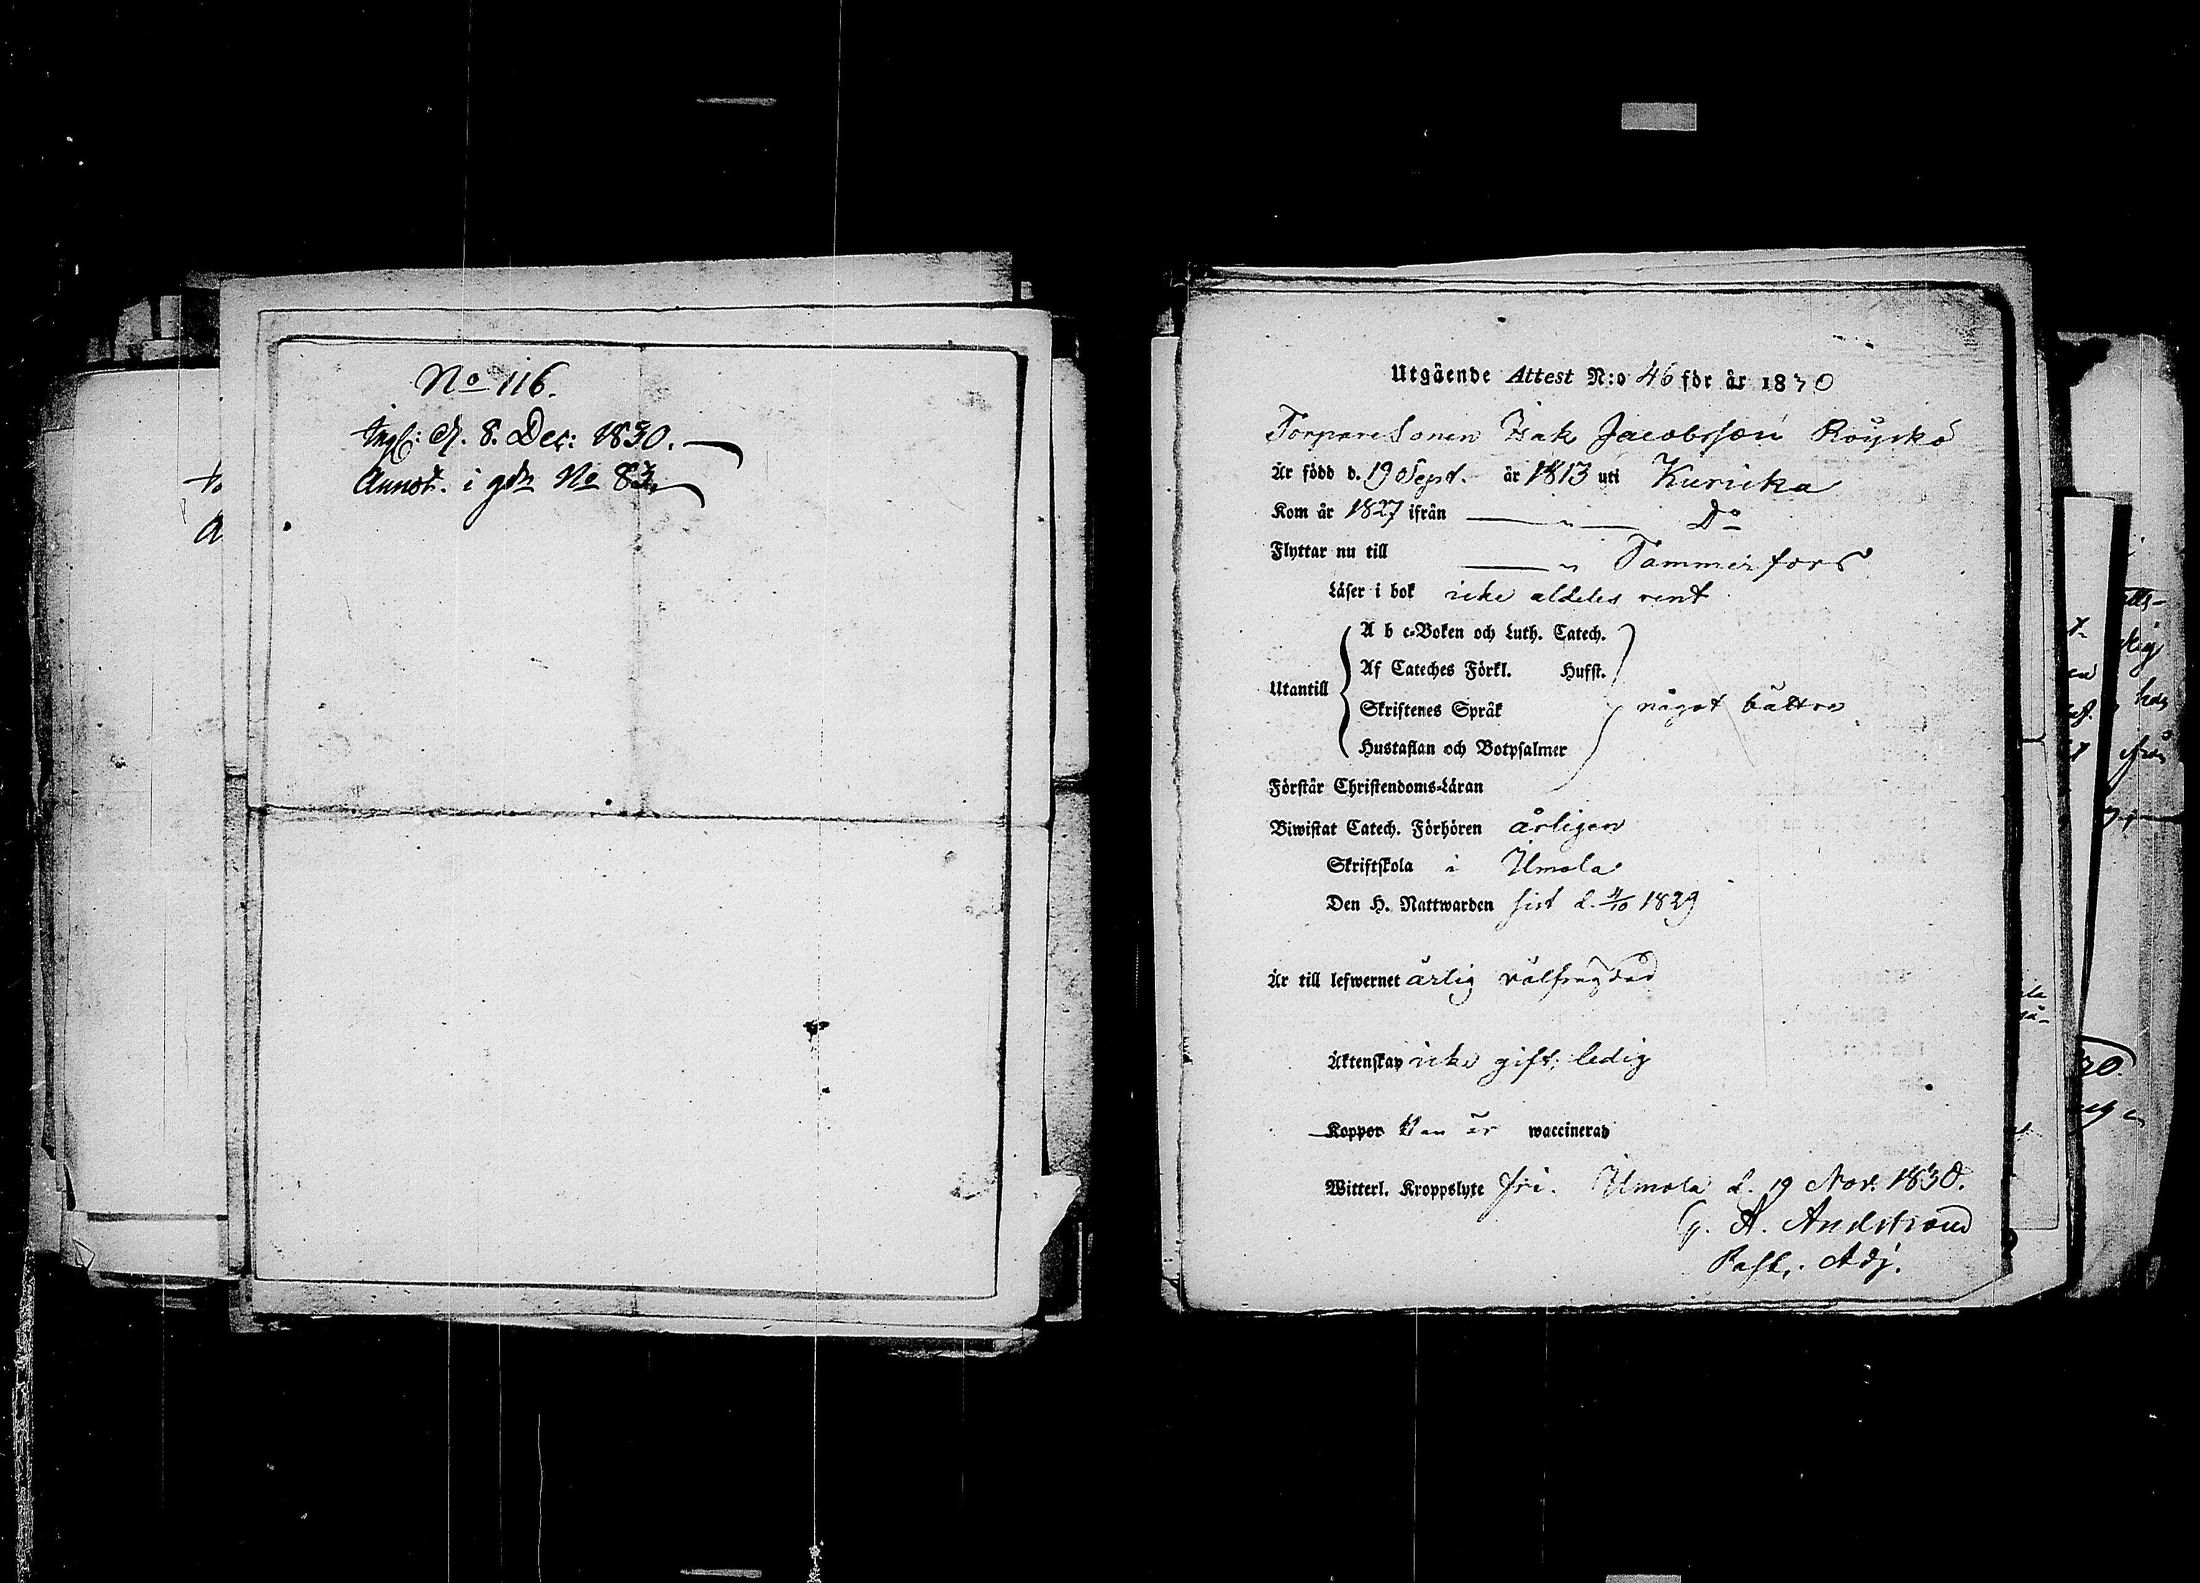 No 116.
Ingl: d. 8. Dec: 1830.
Annot. i gdn No 83.
Utgående Attest N:o 46 för år 1830
Torparesonen Isak Jacobsson Röyskö
Är född d. 19 Sept. år 1813 uti Kurikka
Kom år 1827 ifrån — " — Do
Flyttar nu till — " Tammerfors
Läser i bok icke aldeles rent
A b c-Boken och Luth. Catech.
Af Cateches Förkl. Husst.
Utantill
Skriftenes Språk något bättre
Hustaflan och Botpsalmer
Förstår Christendoms-Läran
Biwistat Catech. Förhören årligen
Skriftskola i Ilmola
Den H. Nattwarden sist d. 4/10 1829
Är till lefwernet ärlig välfrägdad
Äktenskap icke gift, ledig
Koppor Han är waccinerad
Witterl. Kroppslyte fri. Ilmola d. 19 Nov. 1830.
G. A. Andstrand
Past. Adj.